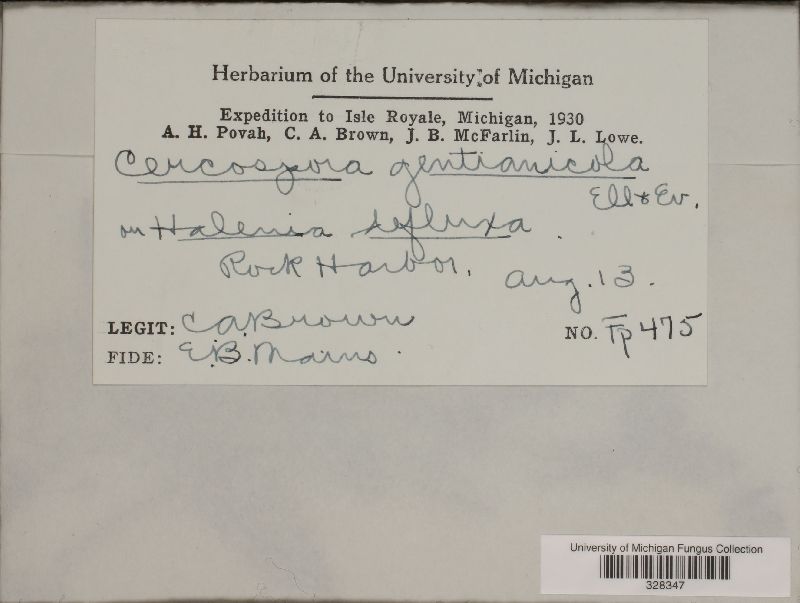 Herbarium of the University of Michigan
Expedition to Isle Royale, Michigan, 1930
A. H. Povah, C. A. Brown, J. B. McFarlin, J. L. Lowe.
Cercospora gentianicola
Ell & Ev.
on Halenia deflexa.
Rock Harbor. Aug. 13.
LEGIT: C A. Brown
NO. Fp 475
FIDE: E. B. Mains.
University of Michigan Fungus Collection
328347